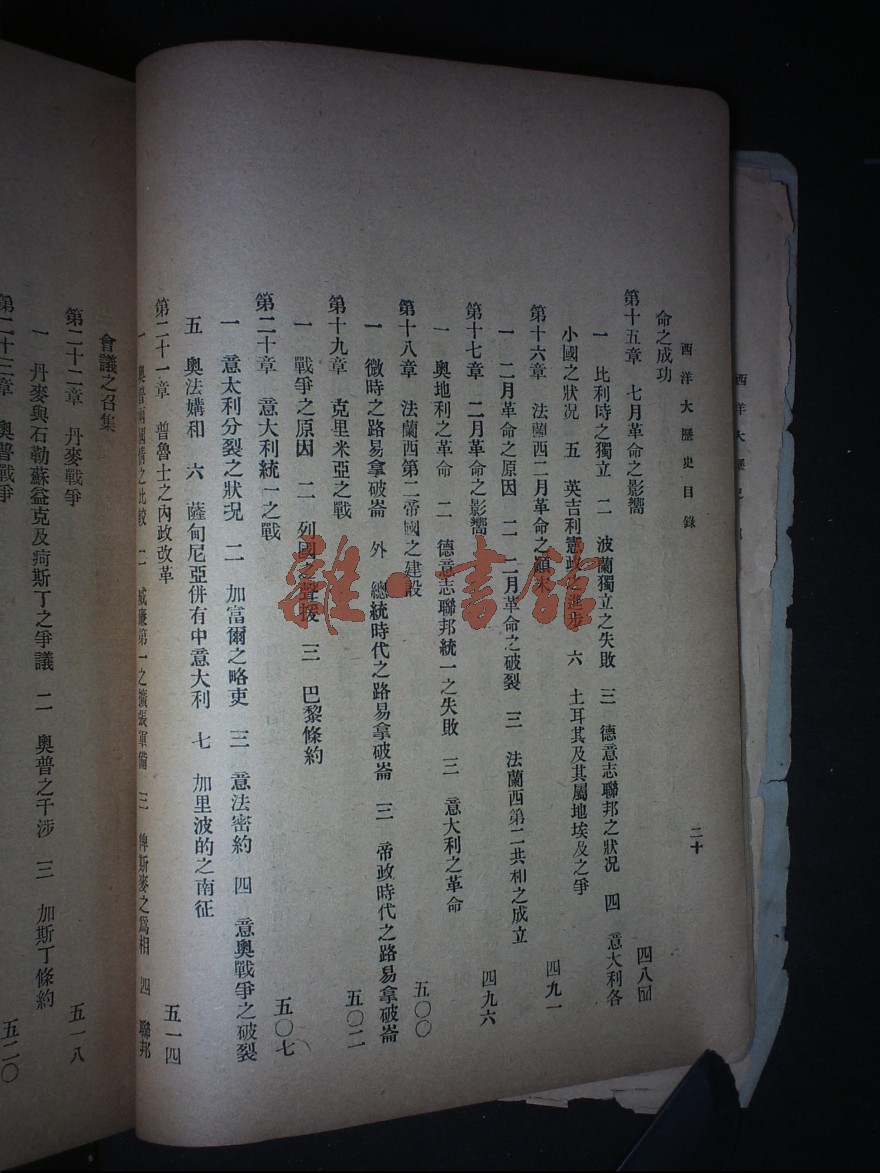 西洋大歷史目錄
二十
命之成功
第十五章 七月革命之影響 四八四
一 比利時之獨立 二 波蘭獨立之失敗 三 德意志聯邦之狀况 四 意大利各
小國之狀况 五 英吉利憲政之進步 六 土耳其及其屬地埃及之爭
第十六章 法蘭西二月革命之顚末 四九一
一 二月革命之原因 二 二月革命之破裂 三 法蘭西第二共和之成立
第十七章 二月革命之影響 四九六
一 奧地利之革命 二 德意志聯邦統一之失敗 三 意大利之革命
第十八章 法蘭西第二帝國之建設 五〇〇
一 微時之路易拿破崙 外 總統時代之路易拿破崙 三 帝政時代之路易拿破崙
第十九章 克里米亞之戰 五〇二
一 戰爭之原因 二 列國之聲援 三 巴黎條約
第二十章 意大利統一之戰 五〇七
一 意大利分裂之狀况 二 加富爾之略吏 三 意法密約 四 意奧戰爭之破裂
五 奧法媾和 六 薩甸尼亞併有中意大利 七 加里波的之南征
第二十一章 普魯士之內政改革 五一四
一 奧普兩國情之比較 二 威廉第一之擴張軍備 三 俾斯麥之爲相 四 聯邦
會議之召集
第二十二章 丹麥戰爭 五一八
一 丹麥與石勒蘇益克及荷斯丁之爭議 二 奧普之干涉 三 加斯丁條約
第二十三章 奧普戰爭 五二〇
雜·書館